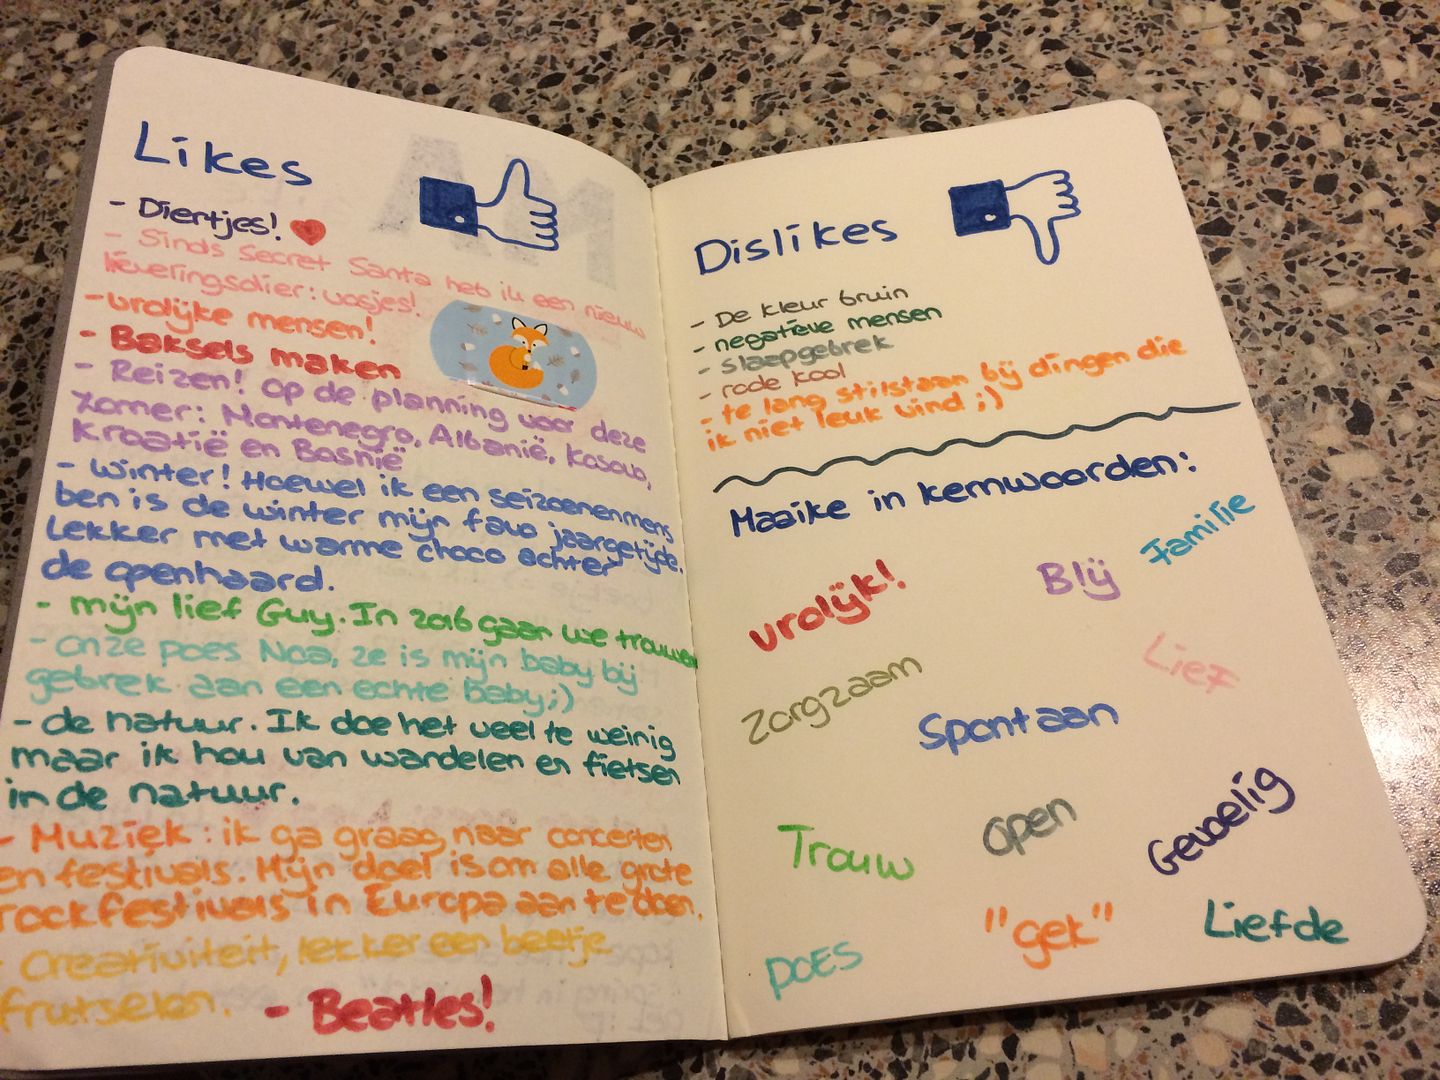 Likes
- Diertjes!
- Sinds Secret Santa heb ik een nieuw
lievelingsdier: vosjes!
- vrolijke mensen!
- Baksels maken
- Reizen! Op de planning voor deze
zomer: Montenegro, Albanië, Kosovo,
Kroatië en Bosnië
- Winter! Hoewel ik een seizoenenmens
ben is de winter mijn favo jaargetijde.
Lekker met warme choco achter
de openhaard.
- mijn lief Guy. In 2016 gaan we trouwen
- onze poes Noa, ze is mijn baby bij
gebrek aan een echte baby ;)
- de natuur. Ik doe het veel te weinig
maar ik hou van wandelen en fietsen
in de natuur.
- Muziek: ik ga graag naar concerten
en festivals. Mijn doel is om alle grote
rockfestivals in Europa aan te doen.
- Creativiteit, lekker een beetje
frutselen.
- Beatles!
Dislikes
- De kleur bruin
- negatieve mensen
- slaapgebrek
- rode kool
- te lang stilstaan bij dingen die
ik niet leuk vind ;)
Maaike in kernwoorden:
vrolijk!
Blij
Familie
Zorgzaam
Lief
Spontaan
Trouw
open
Gevoelig
poes
"gek"
Liefde